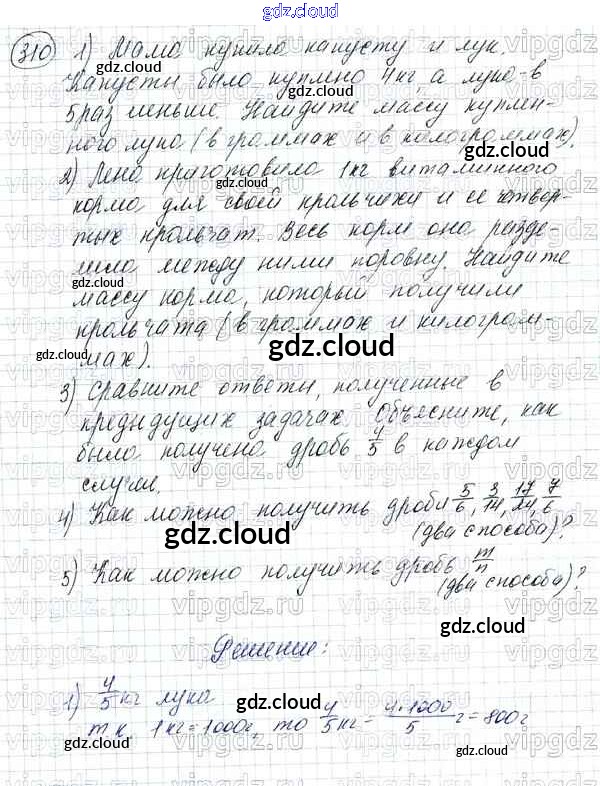 gdz.cloud
310 1) Мама купила капусту и лук.
Капусты было куплено 4кг, а лука - в
5 раз меньше. Найдите массу куплен-
ного лука (в граммах и в килограммах).
2) Лена приготовила 1кг витаминного
корма для своей крольчихи и ее четвер-
тых крольчат. Весь корм она разде-
лила между ними поровну. Найдите
массу корма, который получили
крольчата (в граммах и килограм-
мах).
3) Сравните ответы, полученные в
предыдущих задачах. Объясните, как
была получена дробь 4/5 в каждом
случае.
4) Как можно получить дроби 5/6, 3/14, 17/24, 7/6
(два способа)?
5) Как можно получить дробь m/n
(два способа)?
Решение:
1) 4/5 кг лука
т.к. 1кг = 1000г, то 4/5 кг = 4·1000/5 г = 800г
gdz.cloud